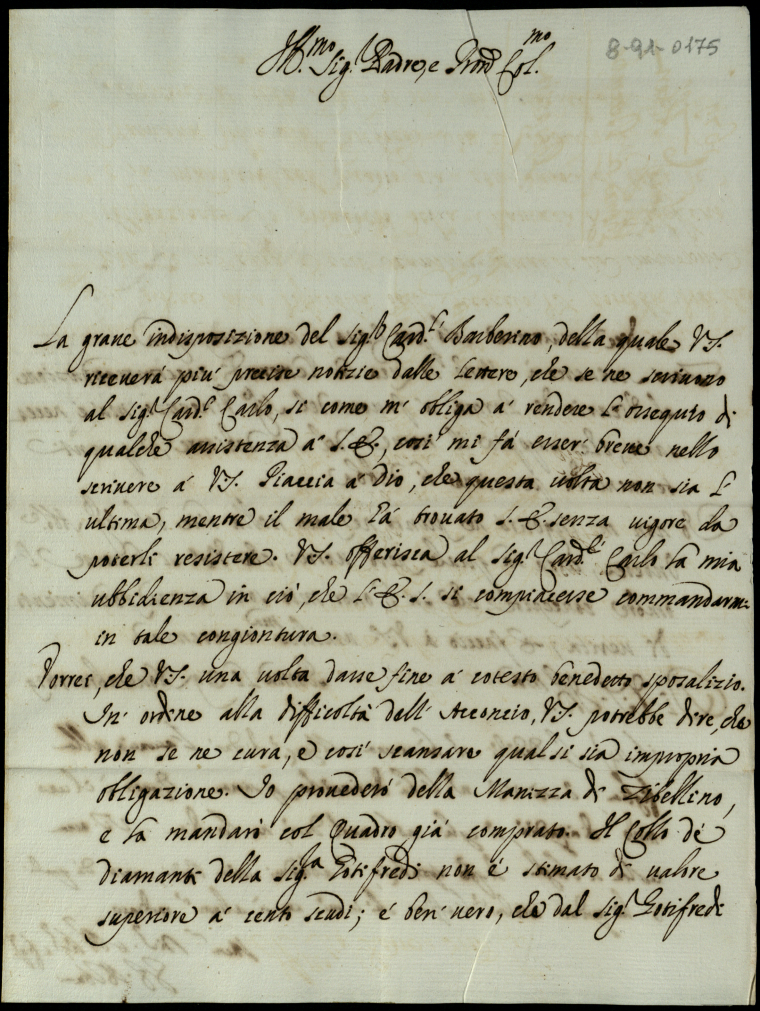 8-91-0175
Ill.mo Sig.r Padre, e Pron Col.mo
La graue indisposizione del Sig.r Card.l Barberino, della quale V.S.
riceuerà più precise notizie dalle Lettere, che se ne scriuono
al Sig.r Card.l Carlo, si come m'obliga à rendere l'ossequio di
qualche assistenza à S.E., così mi fà esser breue nello
scriuere à V.S. Piaccia à Dio, che questa uolta non sia l'
ultima, mentre il male l'à trouato S.E. senza uigore da
poterli resistere. V.S. offerisca al Sig.r Card.l Carlo la mia
ubbidienza in ciò, che l'E.S. si compiacesse commandarmi
in tale congiontura.
Vorrei, che V.S. una uolta dasse fine à cotesto benedetto sposalizio.
In ordine alla difficoltà dell'Acconcio, V.S. potrebbe dire, che
non se ne cura, e così scansare qual si sia impropria
obligazione. Io prouederò della Manizza di Zibellino,
e la mandarò col Quadro già comprato. Il Collo de
diamanti della Sig.ra Gotifredi non è stimato di ualore
superiore à cento scudi; è ben uero, che dal Sig.r Gotifredi